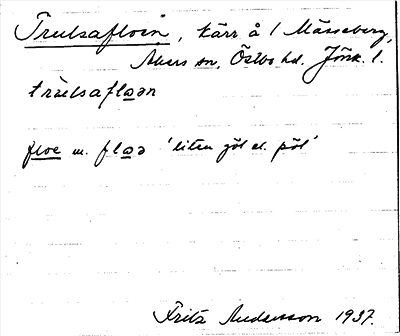 Trulsafloen, kärr å / Mässeberg,
Åkers sn, Östbo hd. Jönk. l.
trùlsaflɷən
floe m. flɷə 'liten göl el. pöl'
Fritz Andersson 1937.